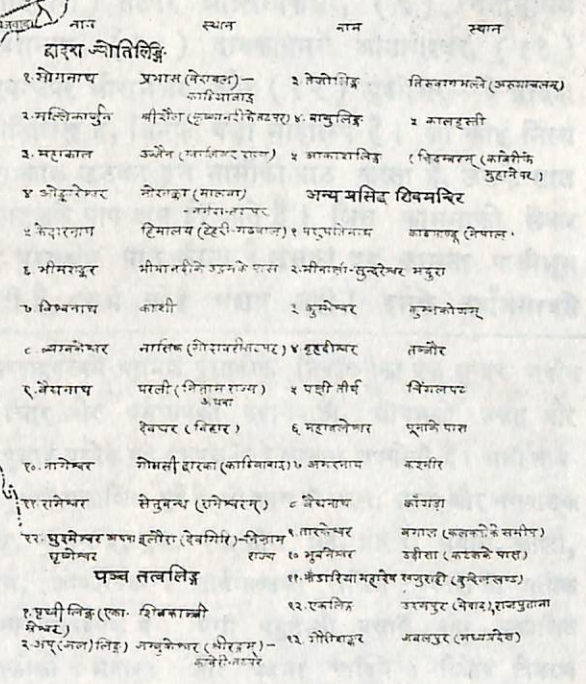 नाम स्थान नाम स्थान
द्वादश ज्योतिर्लिङ्ग
१. सोमनाथ प्रभास (वेरावल)— काठियावाड़
२. मल्लिकार्जुन श्रीशैल (कृष्णानदीके तटपर)
३. महाकाल उज्जैन
४. ओङ्कारेश्वर मान्धाता (मालवा)
५. केदारनाथ हिमालय (टेहरी-गढ़वाल)
६. भीमशङ्कर भीमानदीके उद्गमके पास
७. विश्वनाथ काशी
८. त्र्यम्बकेश्वर नासिक (गोदावरीतटपर)
९. वैद्यनाथ परली (निजाम राज्य)
अथवा
देवघर (बिहार)
१०. नागेश्वर गोमती द्वारका (काठियावाड़)
११. रामेश्वर सेतुबन्ध (रामेश्वरम्)
१२. घुश्मेश्वर अथवा घृष्णेश्वर इलौरा (देवगिरि)—निजाम राज्य
पञ्च तत्वलिङ्ग
१. पृथ्वी लिङ्ग (एकामेश्वर) शिवकाञ्ची
२. अप् (जल) लिङ्ग जम्बुकेश्वर (श्रीरङ्गम्)— कावेरी-तटपर
३. तेजोलिङ्ग तिरुवण्णामलै (अरुणाचलम्)
४. वायुलिङ्ग कालहस्ती
५. आकाशलिङ्ग (चिदम्बरम् (कावेरीके मुहानेपर)
अन्य प्रसिद्ध शिवमन्दिर
१. पशुपतिनाथ काठमाण्डू (नेपाल)
२. मीनाक्षी-सुन्दरेश्वर मदुरा
३. कुम्भेश्वर कुम्भकोणम्
४. बृहदीश्वर तन्जौर
५. पक्षी तीर्थ चिंगलपट
६. महाबलेश्वर पूनाके पास
७. अमरनाथ कश्मीर
८. वैद्यनाथ काँगड़ा
९. तारकेश्वर बंगाल (कलकत्तेके समीप)
१०. भुवनेश्वर उड़ीसा (कटकके पास)
११. कंडारिया महादेव खजुराहो (बुन्देलखण्ड)
१२. एकलिङ्ग उदयपुर (मेवाड़), राजपूताना
१३. गौरीशङ्कर जबलपुर (मध्यप्रदेश)